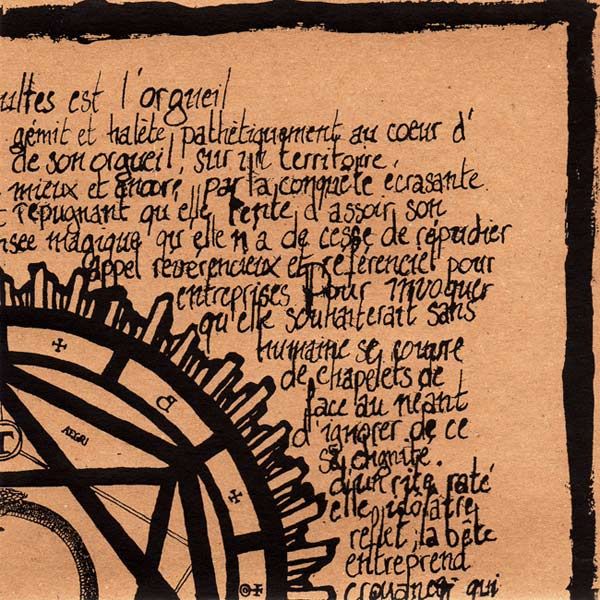 ultes est l'orgueil
gémit et halète pathétiquement au coeur d'
de son orgueil, sur un territoire,
mieux et encore, par la conquête écrasante
répugnant qu'elle tente d'assoir son
nsée magique qu'elle n'a de cesse de répudier
appel révérencieux et référenciel pour
entreprises. Pour invoquer
qu'elle souhaiterait sans
humaine se couvre
de chapelets de
face au néant
d'ignorer de ce
sa dignité.
d'un rite raté
elle idolâtre
reflet, la bête
entreprend
croyances qui